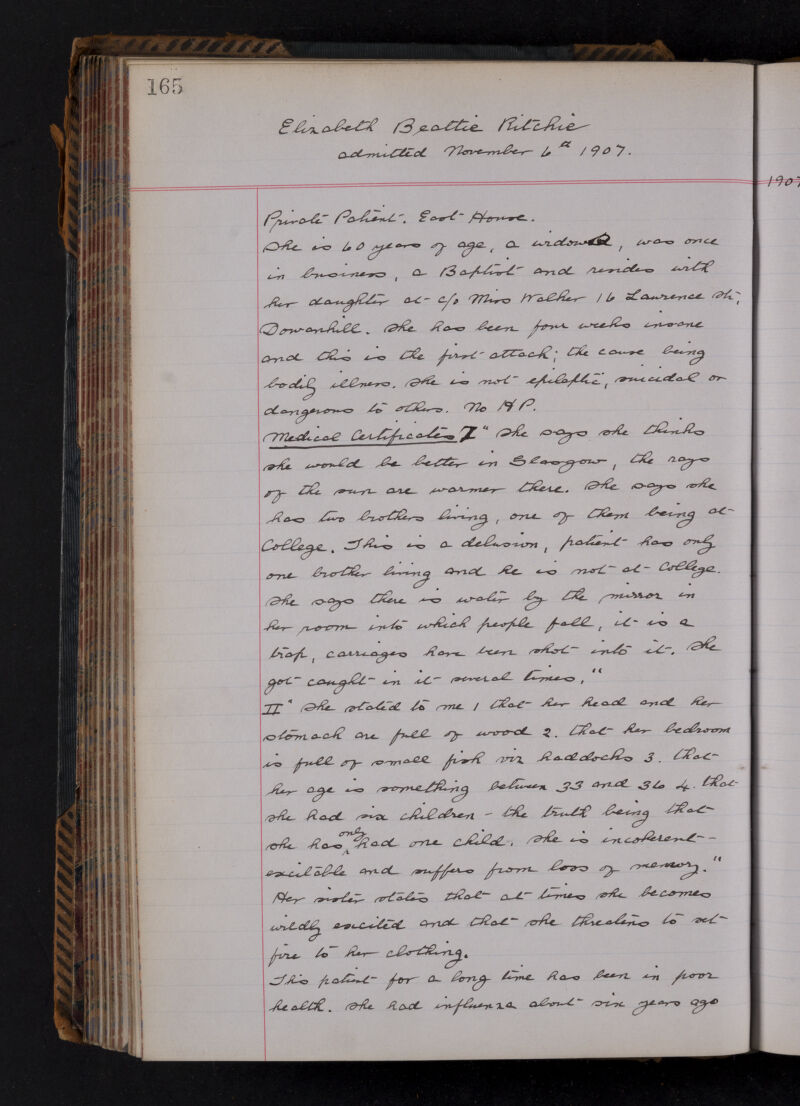 165
Elizabeth Beattie Ritchie
admitted November 6th 1907.
1907
Private Patient. East House.
She is 60 years of age, a widow, was once
in business, a Baptist and resides with
her daughter at c/o Miss Walker 16 Lawrence St.,
Dowanhill. She has been four weeks insane
and this is the first attack; the cause being
bodily illness. She is not epileptic, suicidal or
dangerous to others. No H P.
Medical Certificates I " She says she thinks
she would be better in Glasgow, the rays
of the sun are warmer there. She says she
has two brothers living, one of them being at
College. This is a delusion, patient has only
one brother living and he is not at College.
She says there is water by the mirror in
her room into which people fall, it is a
trap, carriages have been shot into it. She
got caught in it several times."
II " She stated to me 1 that her head and her
stomach are full of wood 2. that her bedroom
is full of small fish viz haddocks 3. that
her age is something between 33 and 36 4. that
she had six children - the truth being that
she has only had one child. She is incoherent -
excitable and suffers from loss of memory."
Her sister states that at times she becomes
wildly excited and that she threatens to set
fire to her clothing.
This patient for a long time has been in poor
health. She had influenza about six years ago